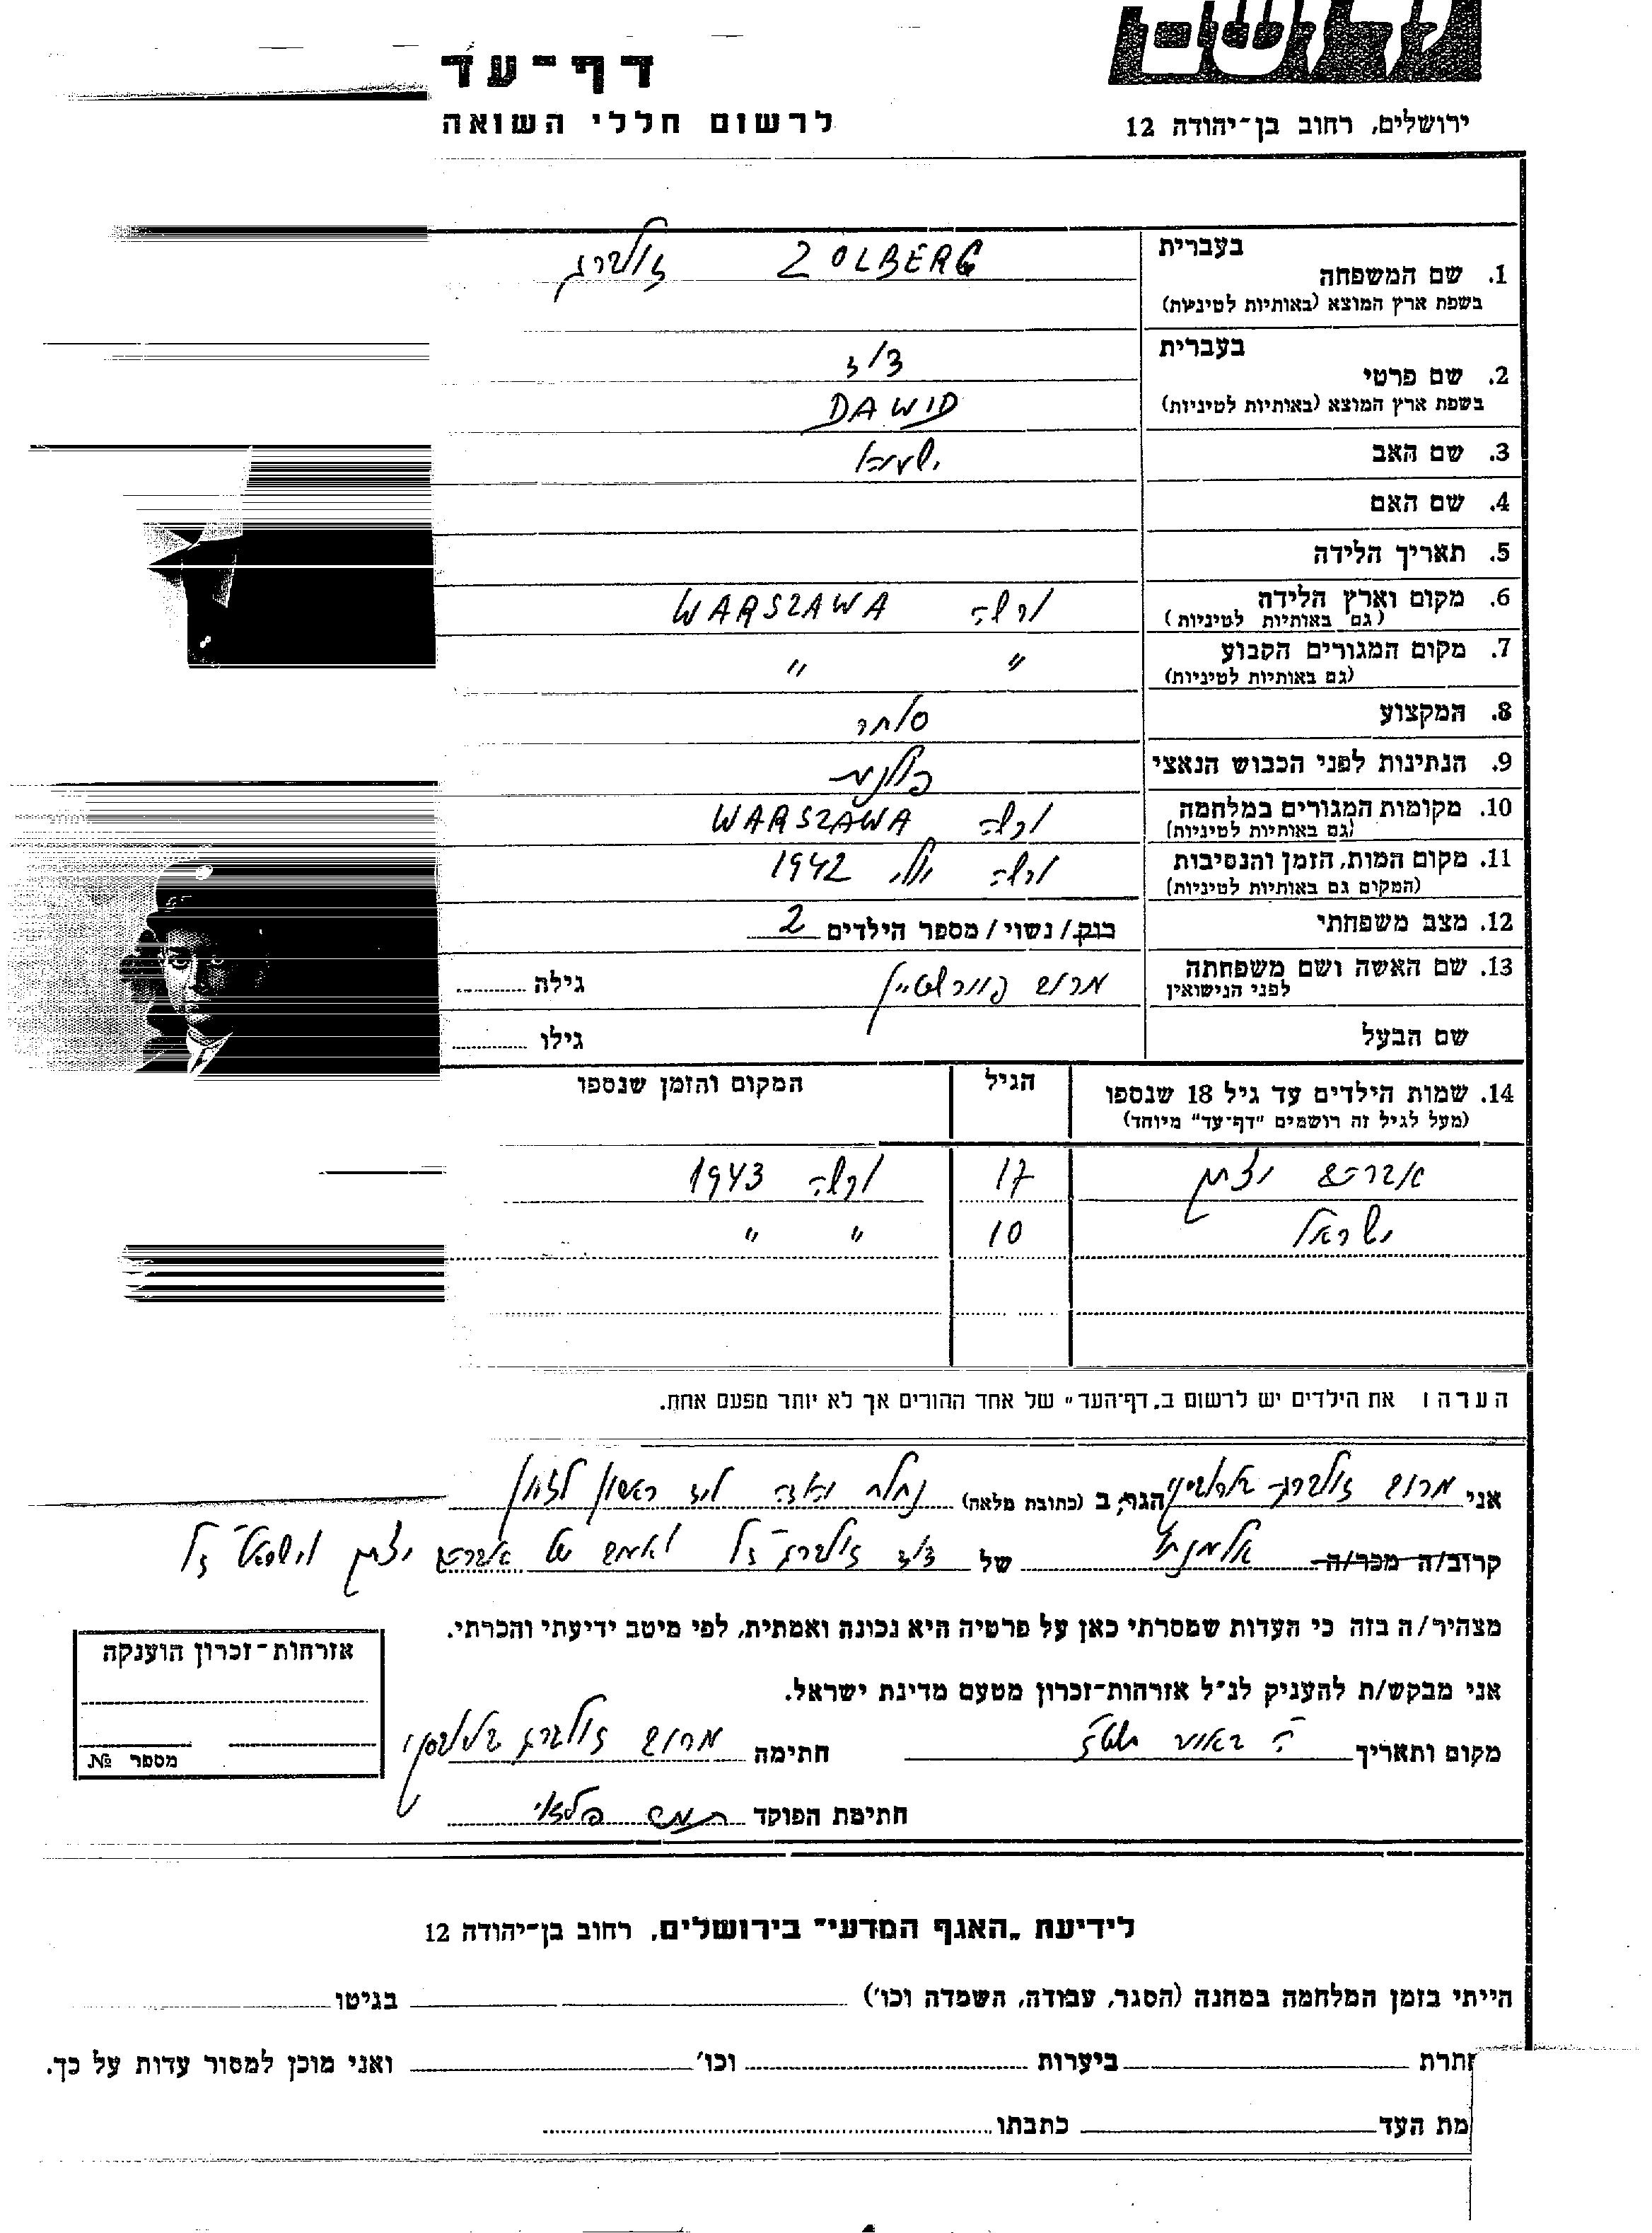 ושם
דף־עד
ירושלים, רחוב בן־יהודה 12
לרשום חללי השואה
בעברית
1. שם המשפחה ZOLBERG זולברג
בשפת ארץ המוצא (באותיות לטיניות)
בעברית
2. שם פרטי דוד
בשפת ארץ המוצא (באותיות לטיניות) DAWID
3. שם האב
4. שם האם
5. תאריך הלידה
6. מקום וארץ הלידה ורשה WARSZAWA
(גם באותיות לטיניות)
7. מקום המגורים הקבוע " "
(גם באותיות לטיניות)
8. המקצוע סוחר
9. הנתינות לפני הכבוש הנאצי פולנית
10. מקומות המגורים במלחמה ורשה WARSZAWA
(גם באותיות לטיניות)
11. מקום המות, הזמן והנסיבות ורשה יולי 1942
(המקום גם באותיות לטיניות)
12. מצב משפחתי רווק / נשוי / מספר הילדים 2
13. שם האשה ושם משפחתה מרים גילה
לפני הנישואין
שם הבעל גילו
14. שמות הילדים עד גיל 18 שנספו הגיל המקום והזמן שנספו
(מעל לגיל זה רושמים "דף־עד" מיוחד)
אברהם יצחק 17 ורשה 1943
ישראל 10 " "
הערה: את הילדים יש לרשום ב„דף־העד" של אחד ההורים אך לא יותר מפעם אחת.
אני מרים זולברג הגר, ב (כתובת מלאה) נחלת יהודה ליד ראשון לציון
קרוב/ה מכר/ה אלמנתו של דוד זולברג ז"ל ואמם של אברהם יצחק וישראל ז"ל
מצהיר/ה בזה כי העדות שמסרתי כאן על פרטיה היא נכונה ואמתית, לפי מיטב ידיעתי והכרתי.
אני מבקש/ת להעניק לנ"ל אזרחות־זכרון מטעם מדינת ישראל.
אזרחות־זכרון הוענקה
מספר №
מקום ותאריך חתימה מרים זולברג
חתימת הפוקד
לידיעת „האגף המדעי" בירושלים, רחוב בן־יהודה 12
הייתי בזמן המלחמה במחנה (הסגר, עבודה, השמדה וכו') בגיטו
תרת ביערות וכו' ואני מוכן למסור עדות על כך.
מת העד כתבתו